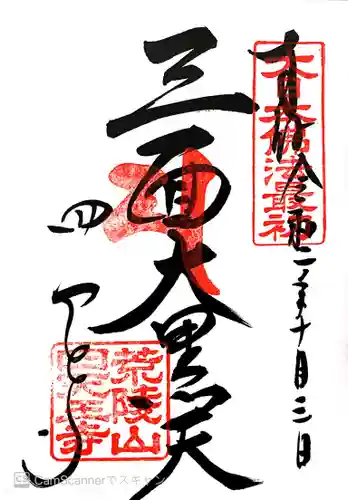 奉拝 令和二年十月三日
大日大福法最神
三面大黒天
四天王寺
荒陵山
四天王寺
CamScannerでスキャン